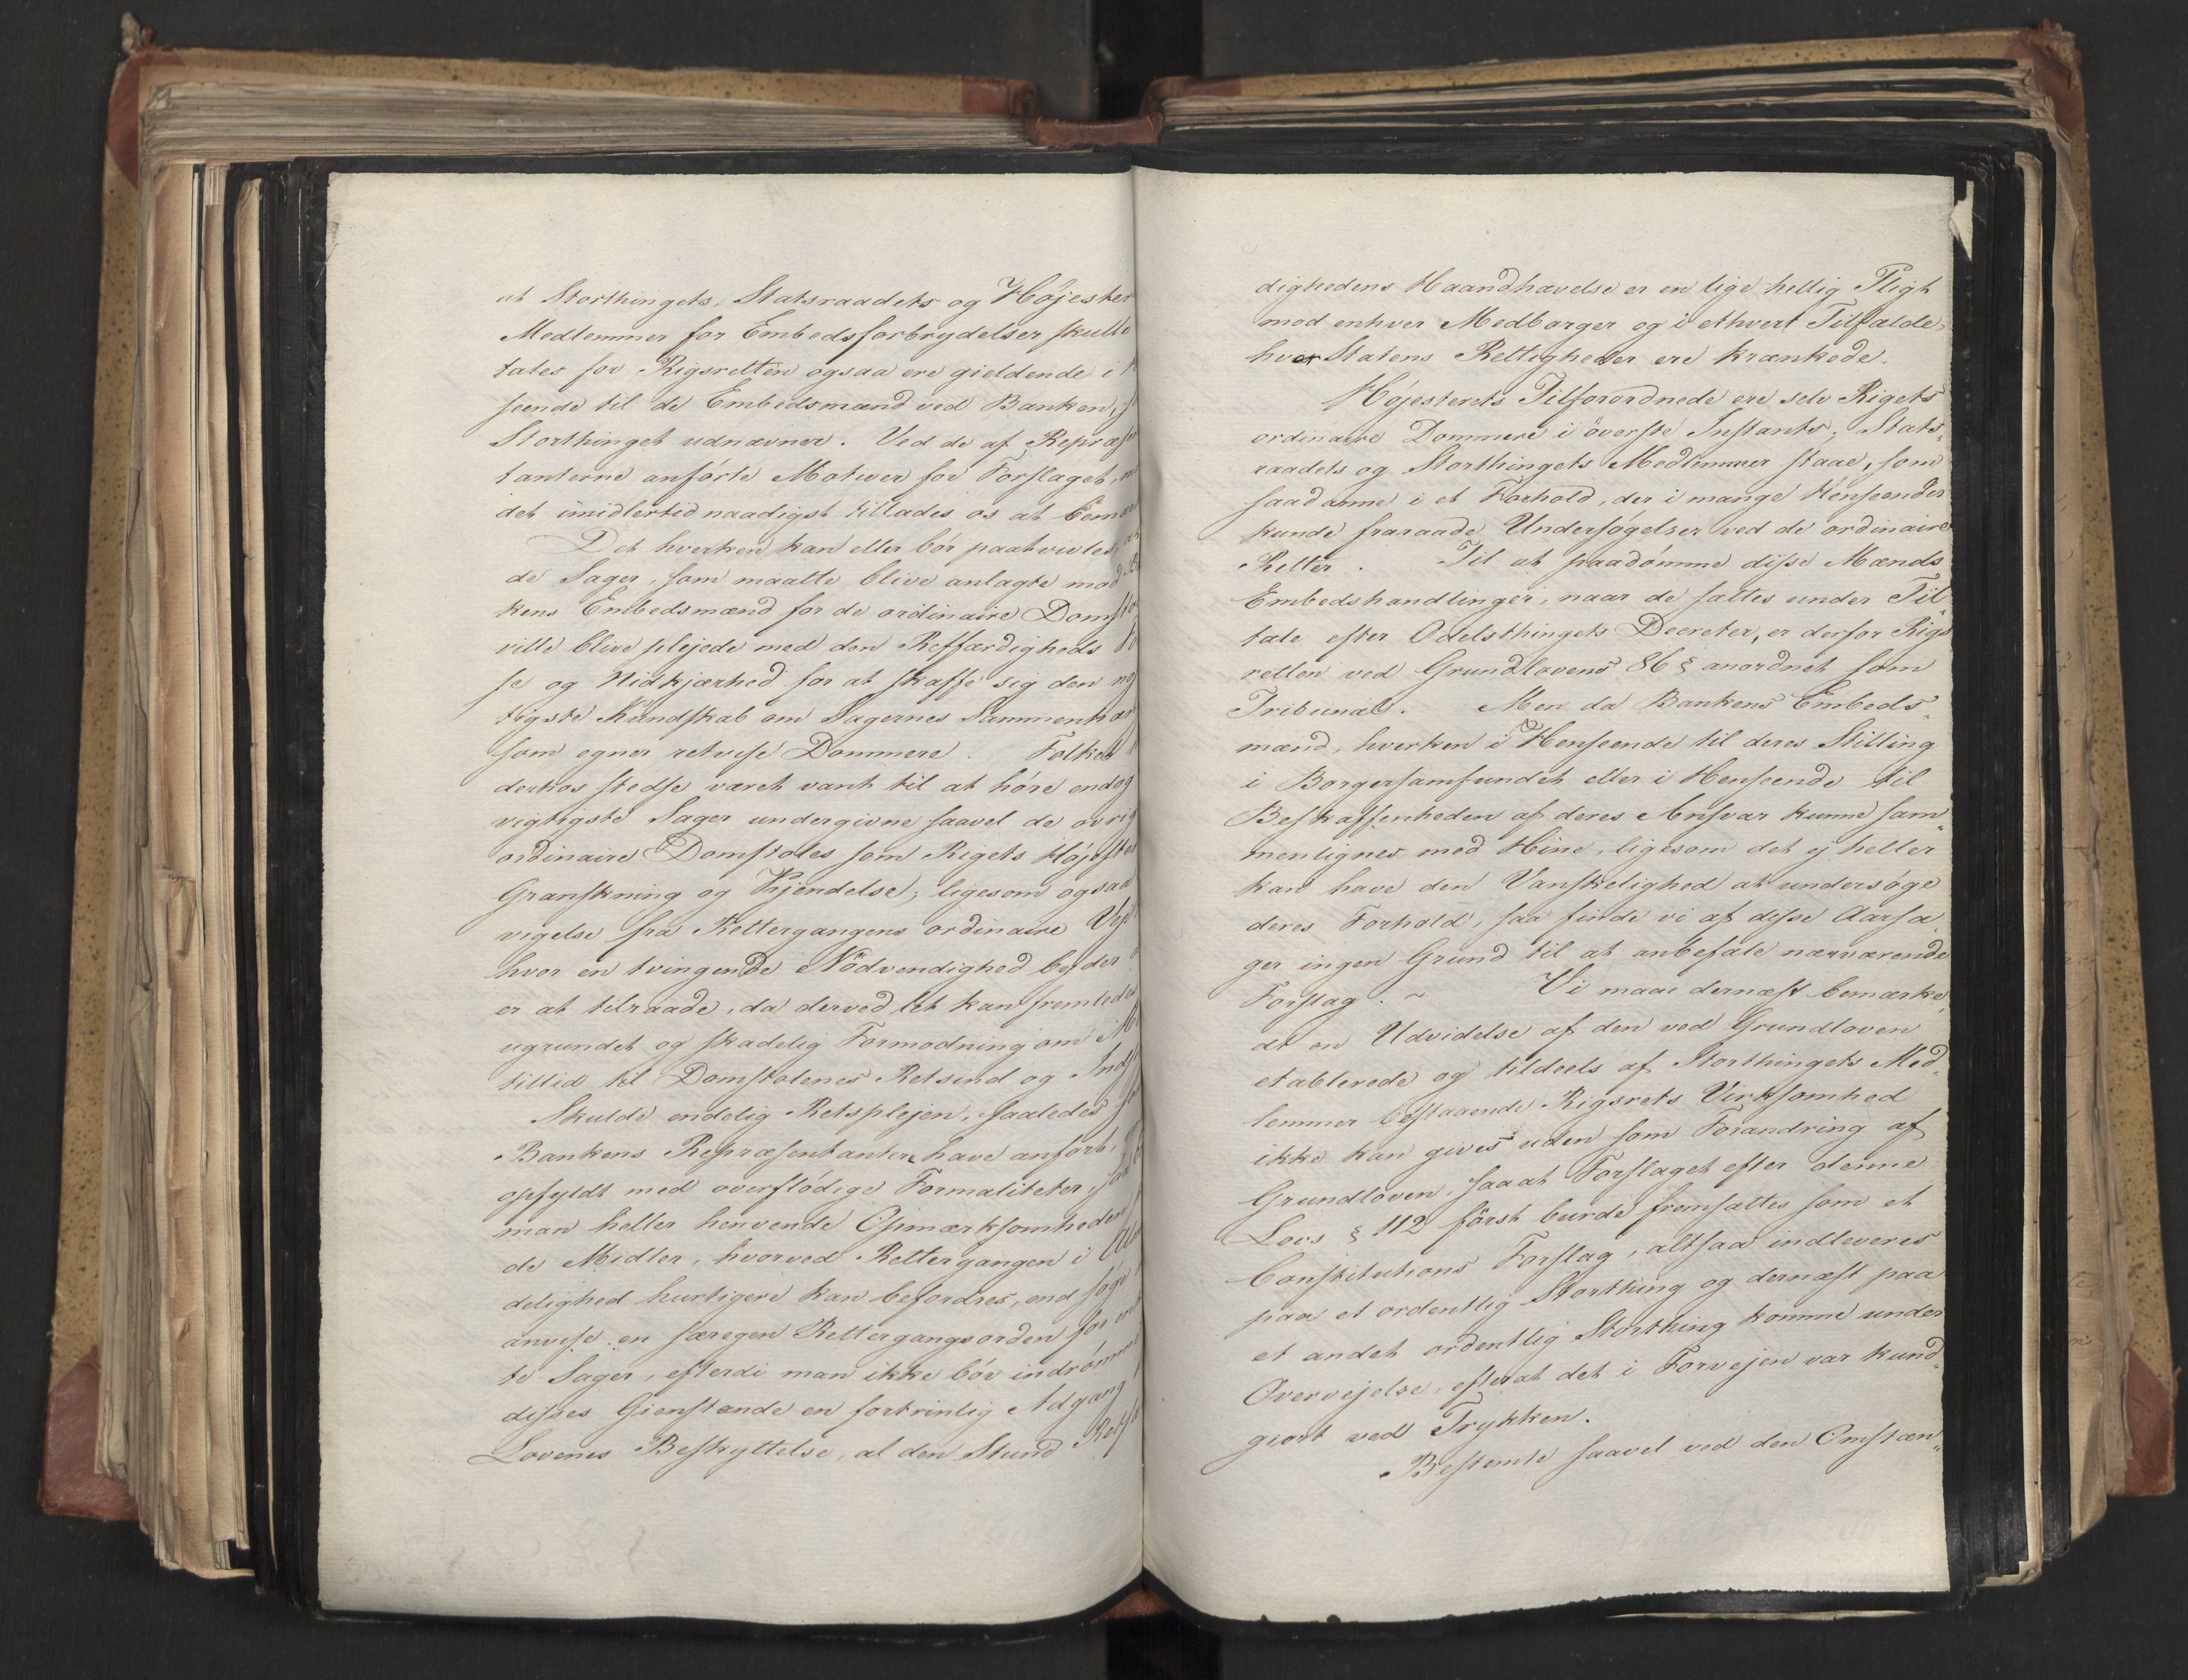 at Storthingets, Statsraadets og Højester
Medlemmer for Embedsforbrydelser skulle
tales for Rigsretten ogsaa ere gieldende i
seende til de Embedsmænd ved Banken,
Storthinget udnævner. Ved de af Repræsen
tanterne anførte Motiver for Forslaget,
det imidlertid naadigst tillades os at bemær
Det hverken kan eller bør paatvivles, at
de Sager, som maatte blive anlagte mod
kens Embedsmænd for de ordinaire Domsto
ville blive plejede med den Retfærdigheds
se og Nidkjærhed for at skaffe sig den nøj
tigste Kundskab om Sagernes Sammenhæng
som egner retvise Dommere. Folket
derhos stedse været vant til at høre endog
vigtigste Sager undergivne saavel de øvrig
ordinaire Domstoles som Rigets Højester
Granskning og Kjendelse; ligesom ogsaa
vigelse fra Rettergangens ordinaire
hvor en tvingende Nødvendighed byder
er at tilraade, da derved let kan fremledes
ugrundet og skadelig Formodning om
tillid til Domstolenes Retsind og Inds
Skulde endelig Retsplejen, saaledes
Bankens Repræsentantere have anført,
opfyldt med overflødige Formaliteter,
man heller henvende Opmærksomheden
de Midler, hvorved Rettergangen i Alm
delighed hurtigere kan befordres, end søge
anvise en særegen Rettergangsorden for
te Sager, efterdi man ikke bør indrømme
disses Gienstande en fortrinlig Adgang
Lovenes Beskyttelse, al den Stund
dighedens Haandhævelse er en lige hellig Pligt
mod enhver Medborger og i ethvert Tilfælde,
hvor Statens Rettigheder ere krænkede.
Højesterets Tilforordnede ere selv Rigets
ordinaire Dommere i øverste Instants; Stats„
raadets og Storthingets Medlemmer staae, som
saadanne i et Forhold, der i mange Henseender
kunde fraraade Undersøgelser ved de ordinaire
Retter. Til at paadømme disse Mænds
Embedshandlinger, naar de sættes under Til„
tale efter Odelsthingets Decreter, er derfor Rigs
retten ved Grundlovens 86 § anordnet som
Tribunal. Men da Bankens Embeds„
mænd, hverken i Henseende til deres Stilling
i Borgersamfundet eller i Henseende til
Beskaffenheden af deres Ansvar kunne sam„
menlignes med Hine, ligesom det ej heller
kan have den Vanskelighed at undersøge
deres Forhold, saa finde vi af disse Aarsa„
ger ingen Grund til at anbefale nærværende
Forslag. ~ Vi maae dernæst bemærke,
at en Udvidelse af den ved Grundloven
etablerede og tildeels af Storthingets Med„
lemmer bestaaende Rigsrets Virksomhed
ikke kan gives uden som Forandring af
Grundloven, saaat Forslaget efter denne
Lovs § 112 først burde fremsættes som et
Constitutions Forslag, altsaa indleveres
paa et ordentlig Storthing og dernæst paa
et andet ordentlig Storthing komme under
Overvejelse, efterat det i Forvejen var kund„
giort ved Trykken.
Bestemte saavel ved den Omstæn„